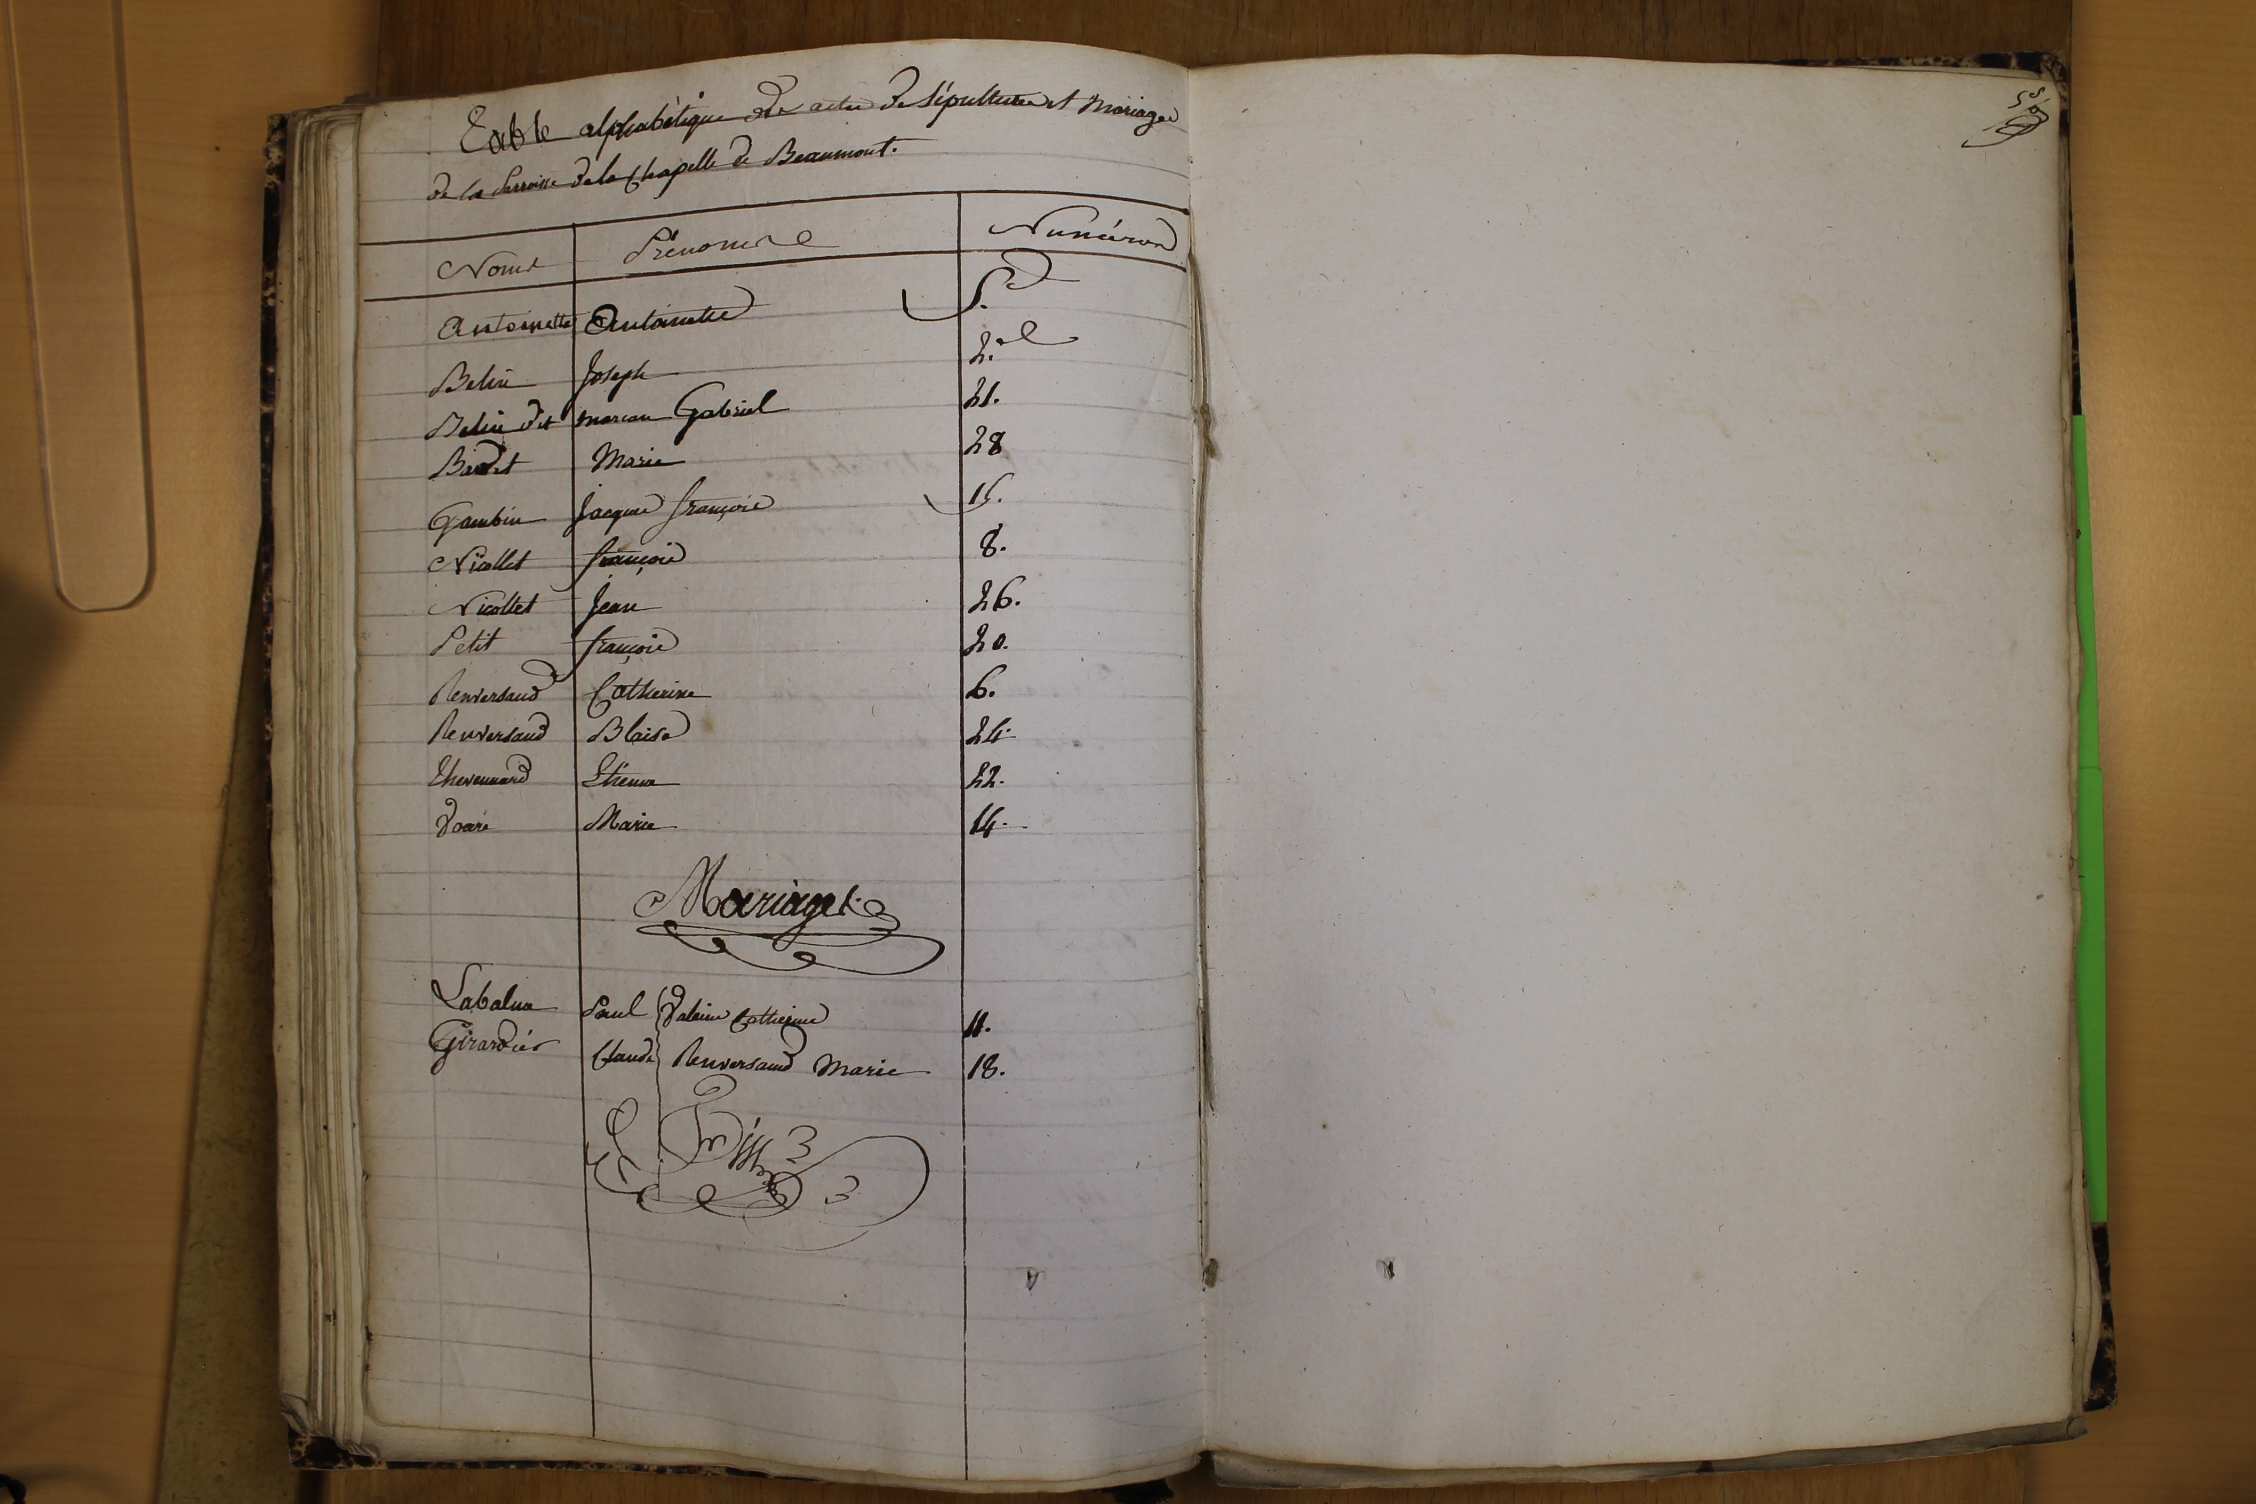 Table alphabétique des actes de sépultures et Mariages
de la Parroisse de la Chapelle de Beaumont.
Noms Prénoms Numéros
Antoinette Antoinette 5.
Belin Joseph 2.
Belin dit moreau Gabriel 21.
Baudet Marie 28
Gambin Jacques françois 15.
Nicollet françois 8.
Nicollet Jean 26.
Petit françois 20.
Renversaud Catherine 6.
Renversaud Blaise 24.
Thevennard Etienne 22.
Voaré Marie 14.
Mariages.
Labalue Paul Catherine 11.
Girardier Claude Renversaud Marie 18.